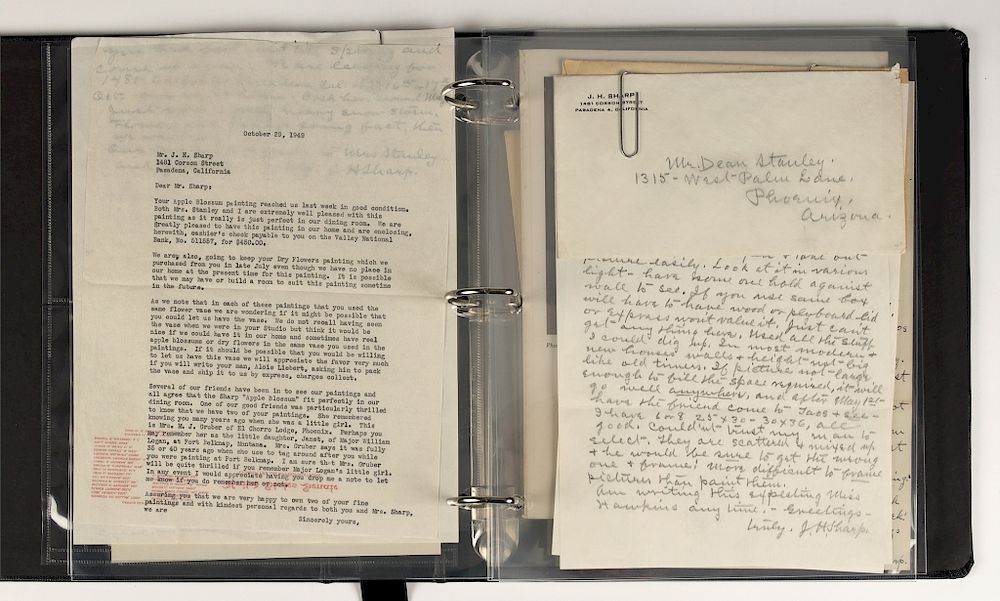 October 29, 1949
Mr. J. H. Sharp
1481 Corson Street
Pasadena, California
Dear Mr. Sharp:
Your Apple Blossum painting reached us last week in good condition.
Both Mrs. Stanley and I are extremely well pleased with this
painting as it really is just perfect in our dining room. We are
greatly pleased to have this painting in our home and are enclosing,
herewith, cashier's check payable to you on the Valley National
Bank, No. 511557, for $450.00.
We are, also, going to keep your Dry Flowers painting which we
purchased from you in late July even though we have no place in
our home at the present time for this painting. It is possible
that we may have or build a room to suit this painting sometime
in the future.
As we note that in each of these paintings that you used the
same flower vase we are wondering if it might be possible that
you could let us have the vase. We do not recall having seen
the vase when we were in your Studio but think it would be
nice if we could have it in our home and sometimes have real
apple blossoms or dry flowers in the same vase you used in the
paintings. If it should be possible that you would be willing
to let us have this vase we will appreciate the favor very much
if you will write your man, Alois Liebert, asking him to pack
the vase and ship it to us by express, charges collect.
Several of our friends have been in to see our paintings and
all agree that the Sharp "Apple Blossum" fit perfectly in our
dining room. One of our good friends was particularly thrilled
to know that we have two of your paintings. She remembered
knowing you many years ago when she was a little girl. This
is Mrs. M. J. Gruber of El Chorro Lodge, Phoenix. Perhaps you
may remember her as the little daughter, Janet, of Major William
Logan, at Fort Belknap, Montana. Mrs. Gruber says it was fully
35 or 40 years ago when she use to tag around after you while
you were painting at Fort Belknap. I am sure that Mrs. Gruber
will be quite thrilled if you remember Major Logan's little girl.
In any event I would appreciate having you drop me a note to let
me know if you do remember
Assuring you that we are very happy to own two of your fine
paintings and with kindest personal regards to both you and Mrs. Sharp,
we are
Sincerely yours,
Mrs Stanley
J H Sharp.
J. H. SHARP
1481 CORSON STREET
PASADENA 4, CALIFORNIA
Mr. Dean Stanley.
1315 - West Palm Lane,
Phoenix,
Arizona.
take out
picture easily. Look at it in various
light - have some one hold against
wall to see. If you use same box
will have to have wood or plyboard lid
or express wont value it. Just cant
get any thing here. Used all the stuff
I could dig up. In most modern +
new houses walls + height not big
like old timers. If picture not large
enough to fill the space required, it will
go well anywhere, and after May 1st
have the friend come to Taos + see -
I have 6 or 8 25x30 - 30x36, all
good. Couldn't trust my man to
select. They are scattered + mixed up
+ he would be sure to get the wrong
one + frame! More difficult to frame
pictures than paint them.
Am writing this expecting Miss
Hawkins any time. - Greetings -
truly, J H Sharp.